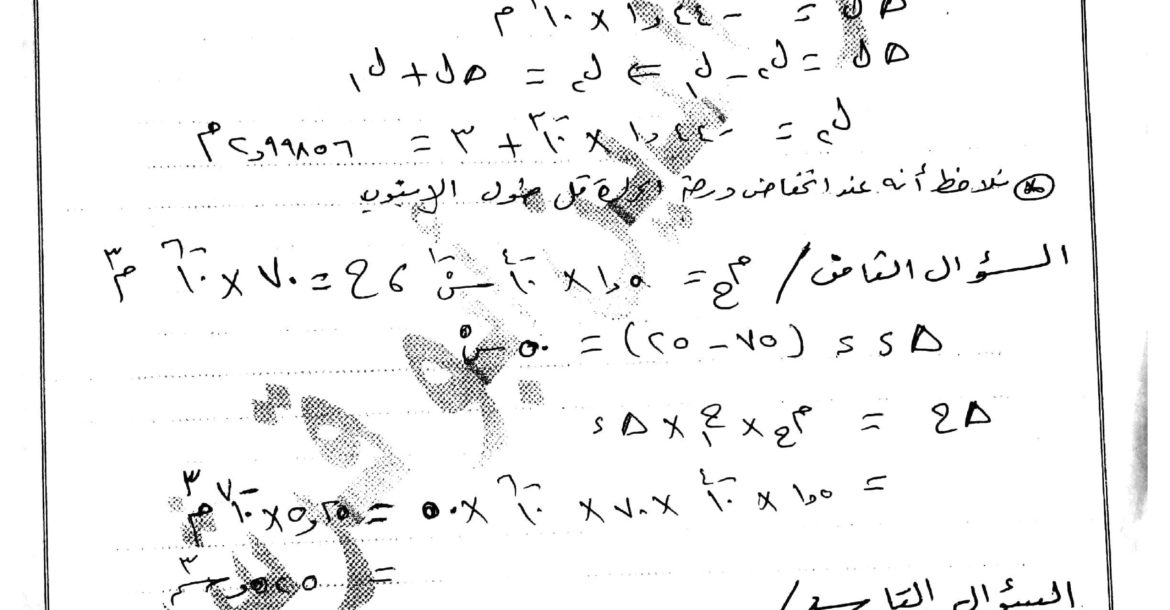 Δل = - ١,٤٤ × ١٠⁻٣ م
Δل = ل٢ - ل١ ⇐ ل٢ = Δل + ل١
ل٢ = - ١,٤٤ × ١٠⁻٣ + ٣ = ٢,٩٩٨٥٦ م
نلاحظ أنه عند انخفاض درجة الحرارة قل طول الإنبوب
السؤال الثامن / مح = ١,٥ × ١٠⁻٤ س⁻١ ، ح = ٧٠ × ١٠⁻٦ م٣
Δ د = (٧٥ - ٢٥) = ٥٠ س°
Δح = مح × ح١ × Δ د
= ١,٥ × ١٠⁻٤ × ٧٠ × ١٠⁻٦ × ٥٠ = ٥,٢٥ × ١٠⁻٧ م٣
السؤال التاسع /